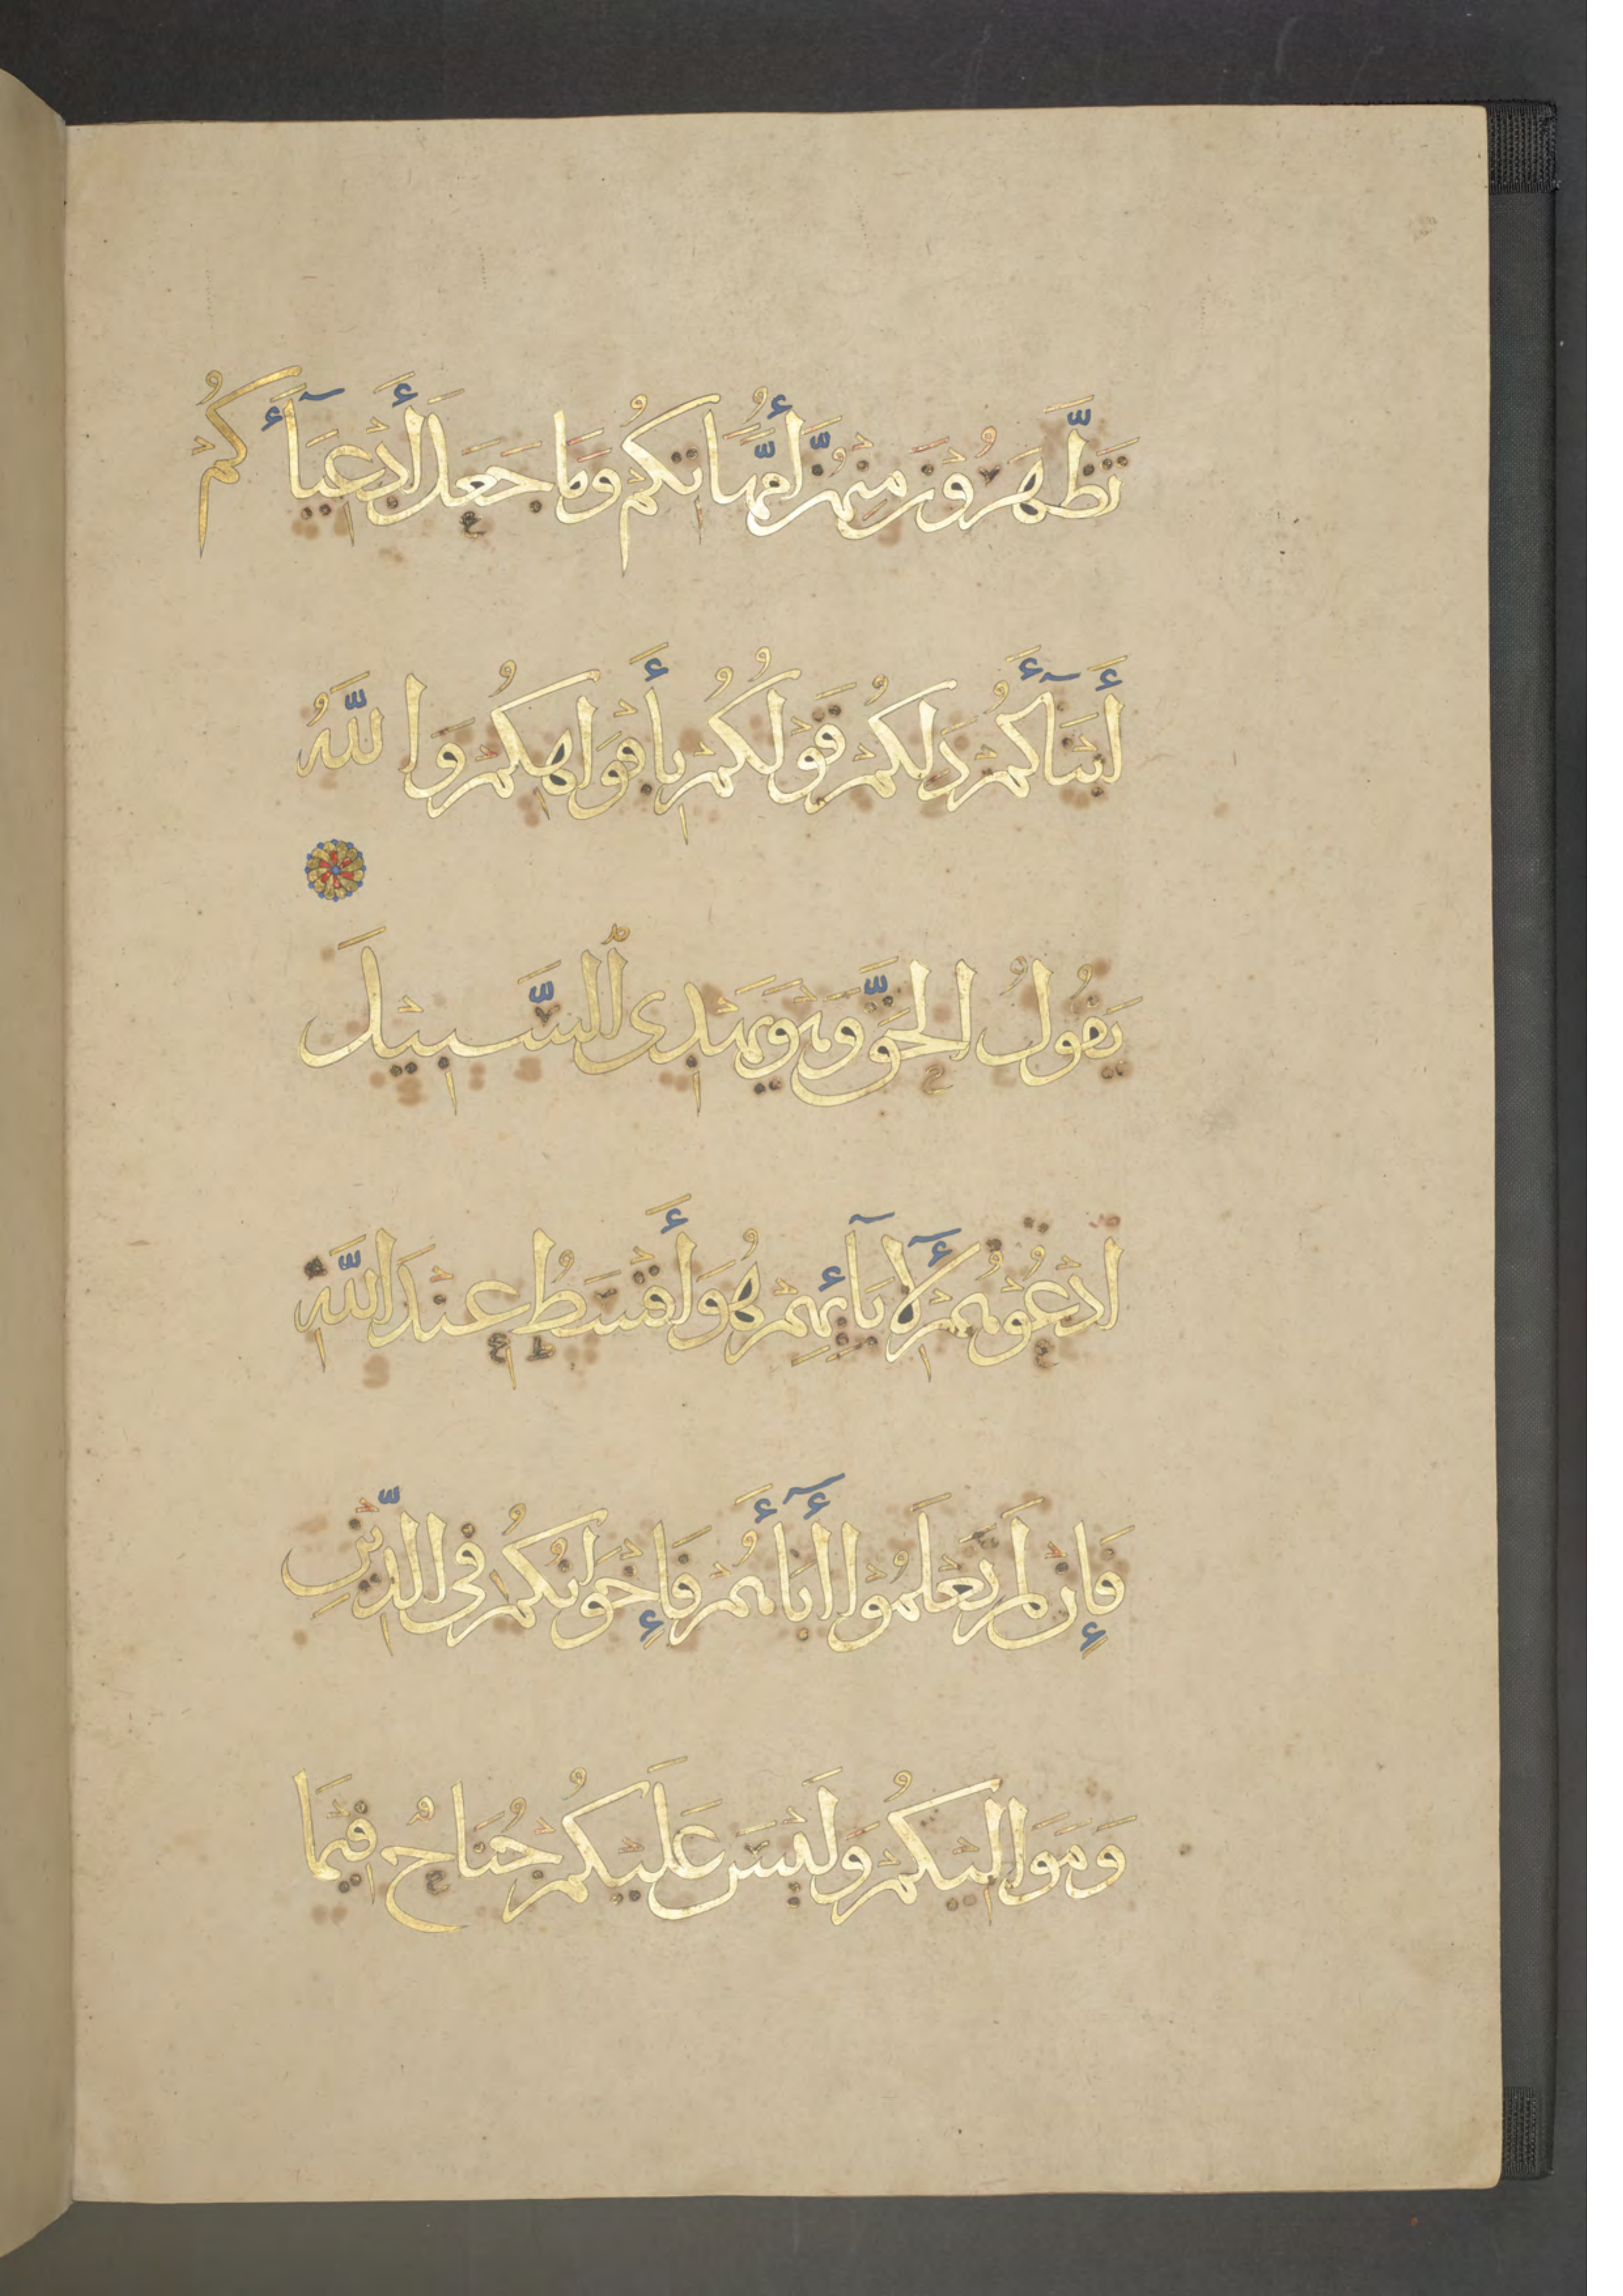 تَظَّهَرُونَ مِنْهُنَّ أُمَّهَاتِكُمْ وَمَا جَعَلَ أَدْعِيَآءَكُمْ
أَبْنَآءَكُمْ ذَلِكُمْ قَوْلُكُمْ بِأَفْوَاهِكُمْ وَاللَّهُ
يَقُولُ الْحَقَّ وَهْوَ يَهْدِى السَّبِيلَ
ادْعُوهُمْ لِأٓبَآئِهِمْ هُوَ أَقْسَطُ عِنْدَ اللَّهِ
فَإِنْ لَمْ تَعْلَمُوا أٓبَآءَهُمْ فَإِخْوَانُكُمْ فِى الدِّينِ
وَمَوَالِيكُمْ وَلَيْسَ عَلَيْكُمْ جُنَاحٌ فِيمَا